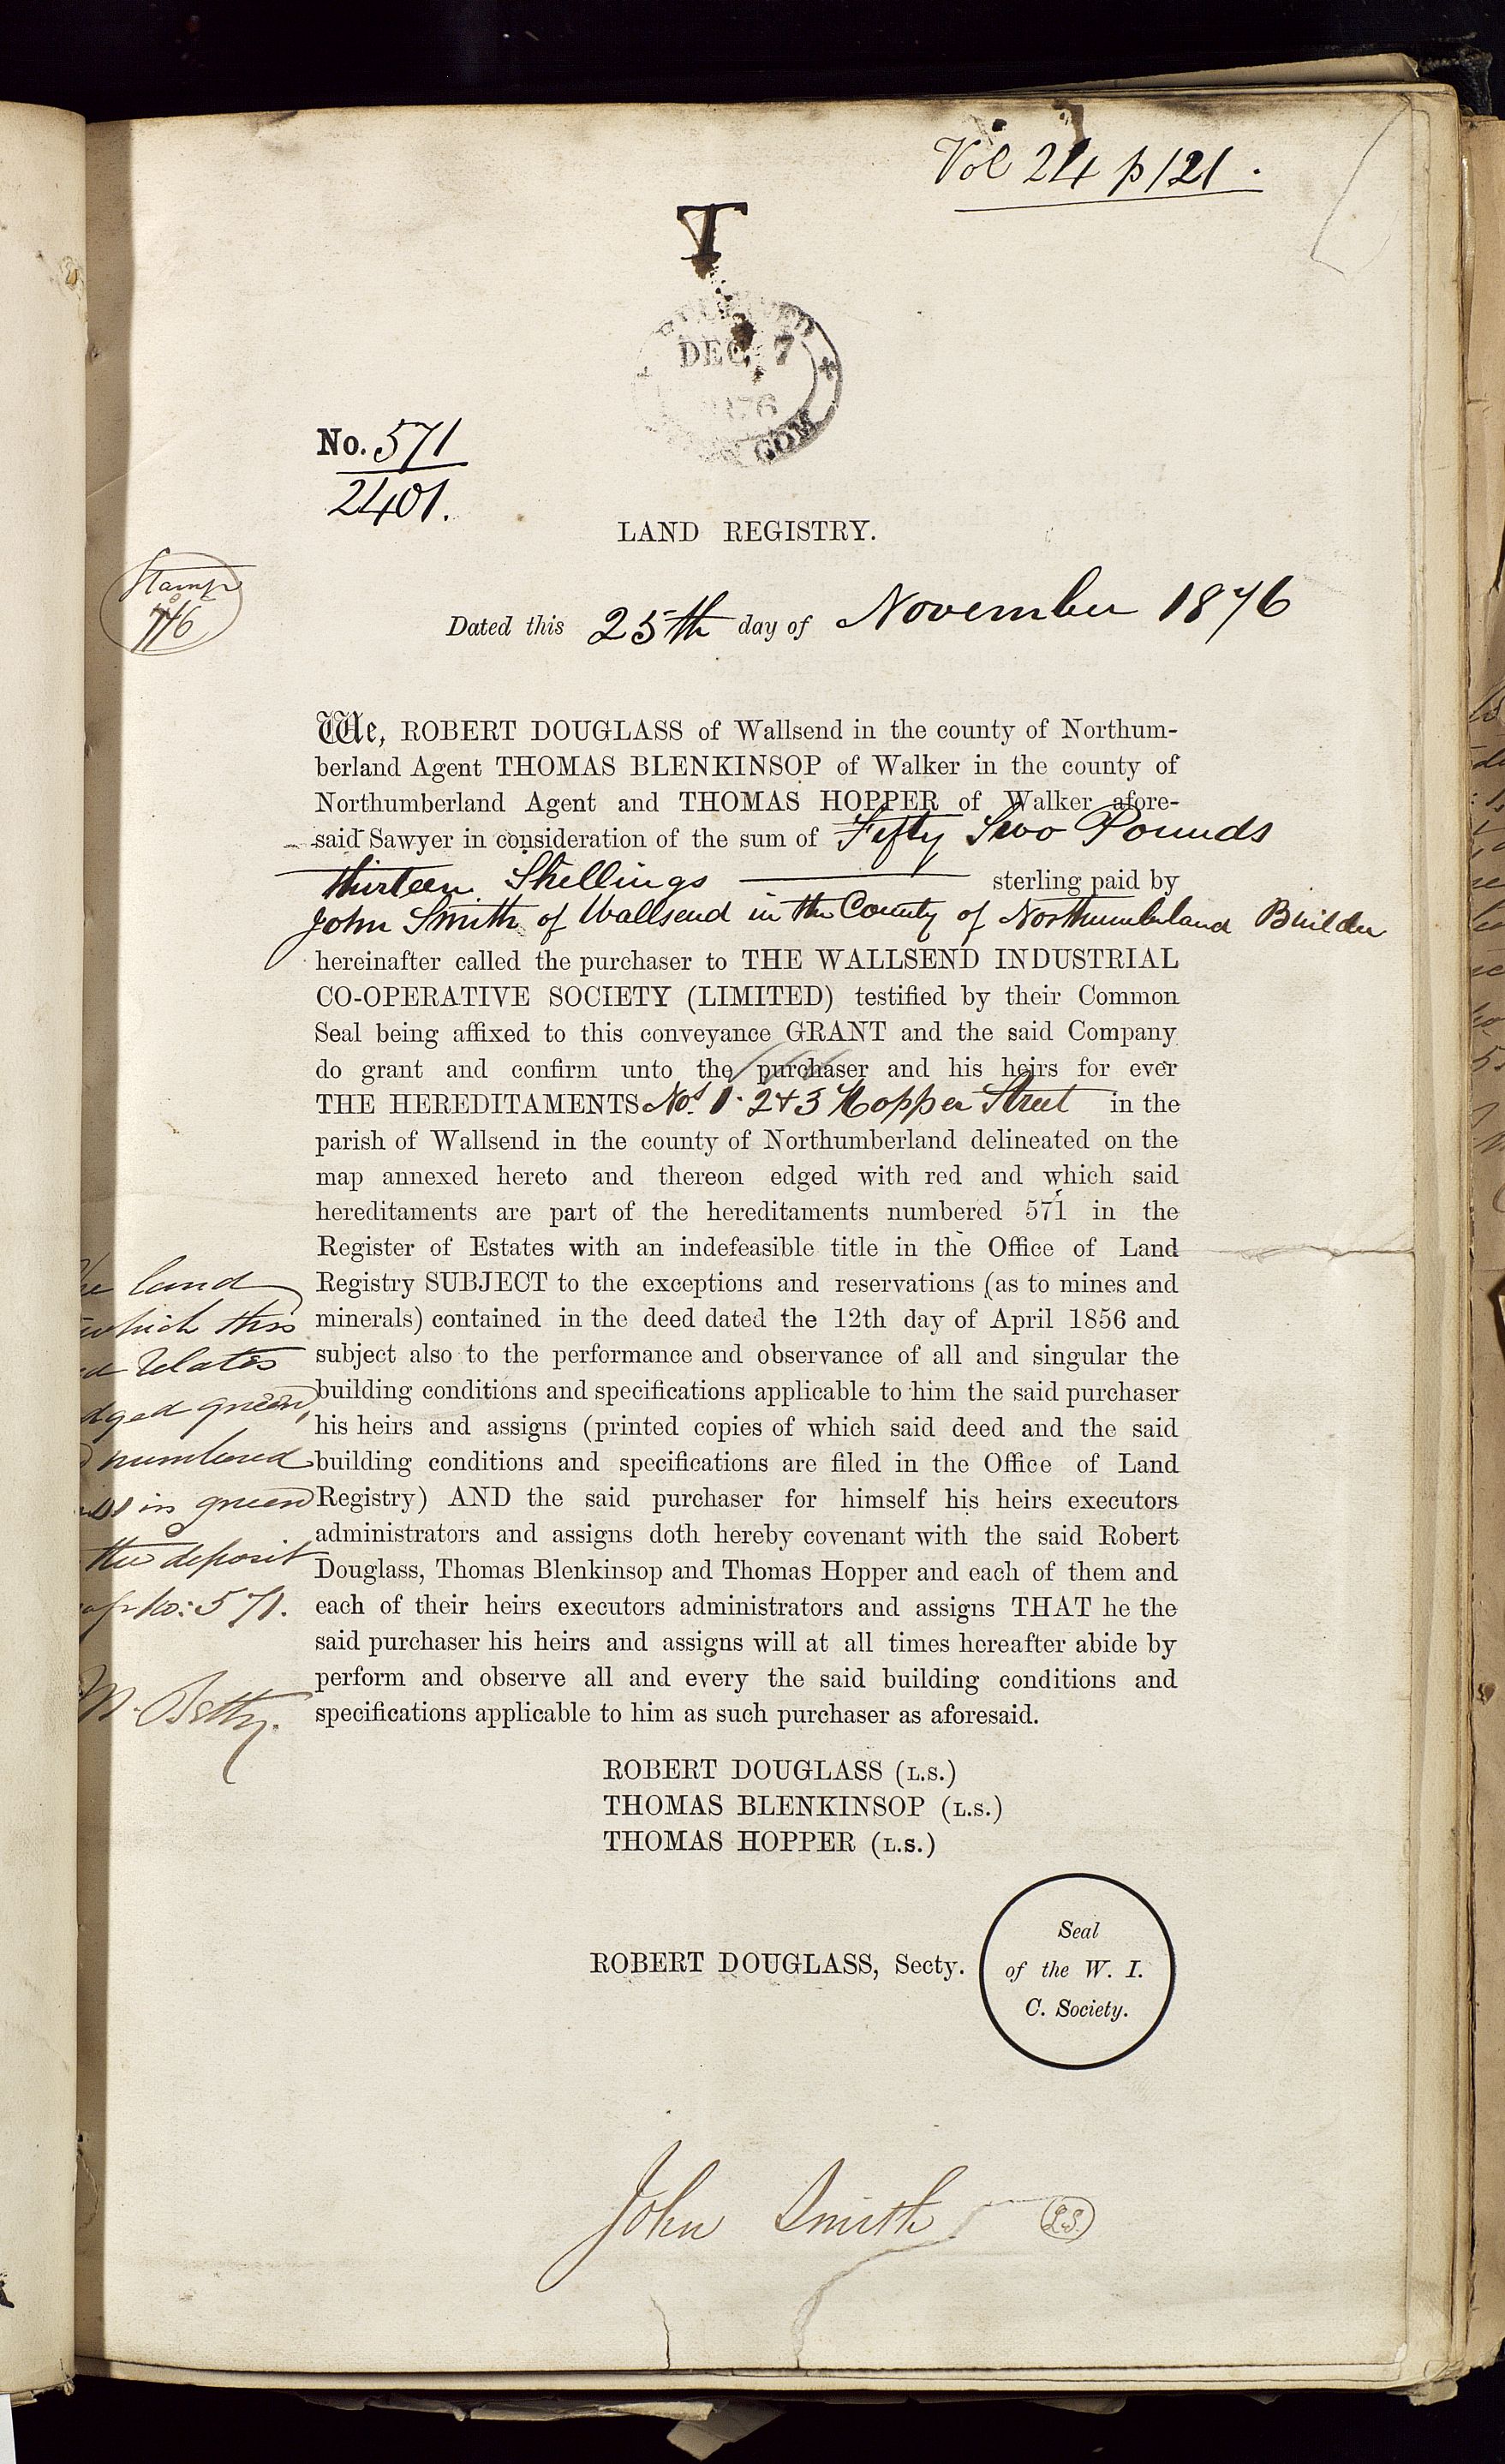 Vol 24 p 121.
T
DEC 7
1876
COM
No. 571
2401.
Stamp
7/6
LAND REGISTRY.
Dated this 25th day of November 1876
We, ROBERT DOUGLASS of Wallsend in the county of Northum-
berland Agent THOMAS BLENKINSOP of Walker in the county of
Northumberland Agent and THOMAS HOPPER of Walker afore-
said Sawyer in consideration of the sum of Fifty Two Pounds
thirteen Shillings sterling paid by
John Smith of Wallsend in the County of Northumberland Builder
hereinafter called the purchaser to THE WALLSEND INDUSTRIAL
CO-OPERATIVE SOCIETY (LIMITED) testified by their Common
Seal being affixed to this conveyance GRANT and the said Company
do grant and confirm unto the purchaser and his heirs for ever
THE HEREDITAMENTS Nos. 1. 2 & 3 Hopper Street in the
parish of Wallsend in the county of Northumberland delineated on the
map annexed hereto and thereon edged with red and which said
hereditaments are part of the hereditaments numbered 571 in the
Register of Estates with an indefeasible title in the Office of Land
Registry SUBJECT to the exceptions and reservations (as to mines and
minerals) contained in the deed dated the 12th day of April 1856 and
subject also to the performance and observance of all and singular the
building conditions and specifications applicable to him the said purchaser
his heirs and assigns (printed copies of which said deed and the said
building conditions and specifications are filed in the Office of Land
Registry) AND the said purchaser for himself his heirs executors
administrators and assigns doth hereby covenant with the said Robert
Douglass, Thomas Blenkinsop and Thomas Hopper and each of them and
each of their heirs executors administrators and assigns THAT he the
said purchaser his heirs and assigns will at all times hereafter abide by
perform and observe all and every the said building conditions and
specifications applicable to him as such purchaser as aforesaid.
land
which this
relates
green,
numbered
in green
the deposit
No: 571.
ROBERT DOUGLASS (L.S.)
THOMAS BLENKINSOP (L.S.)
THOMAS HOPPER (L.S.)
ROBERT DOUGLASS, Secty.
Seal
of the W. I.
C. Society.
John Smith LS.